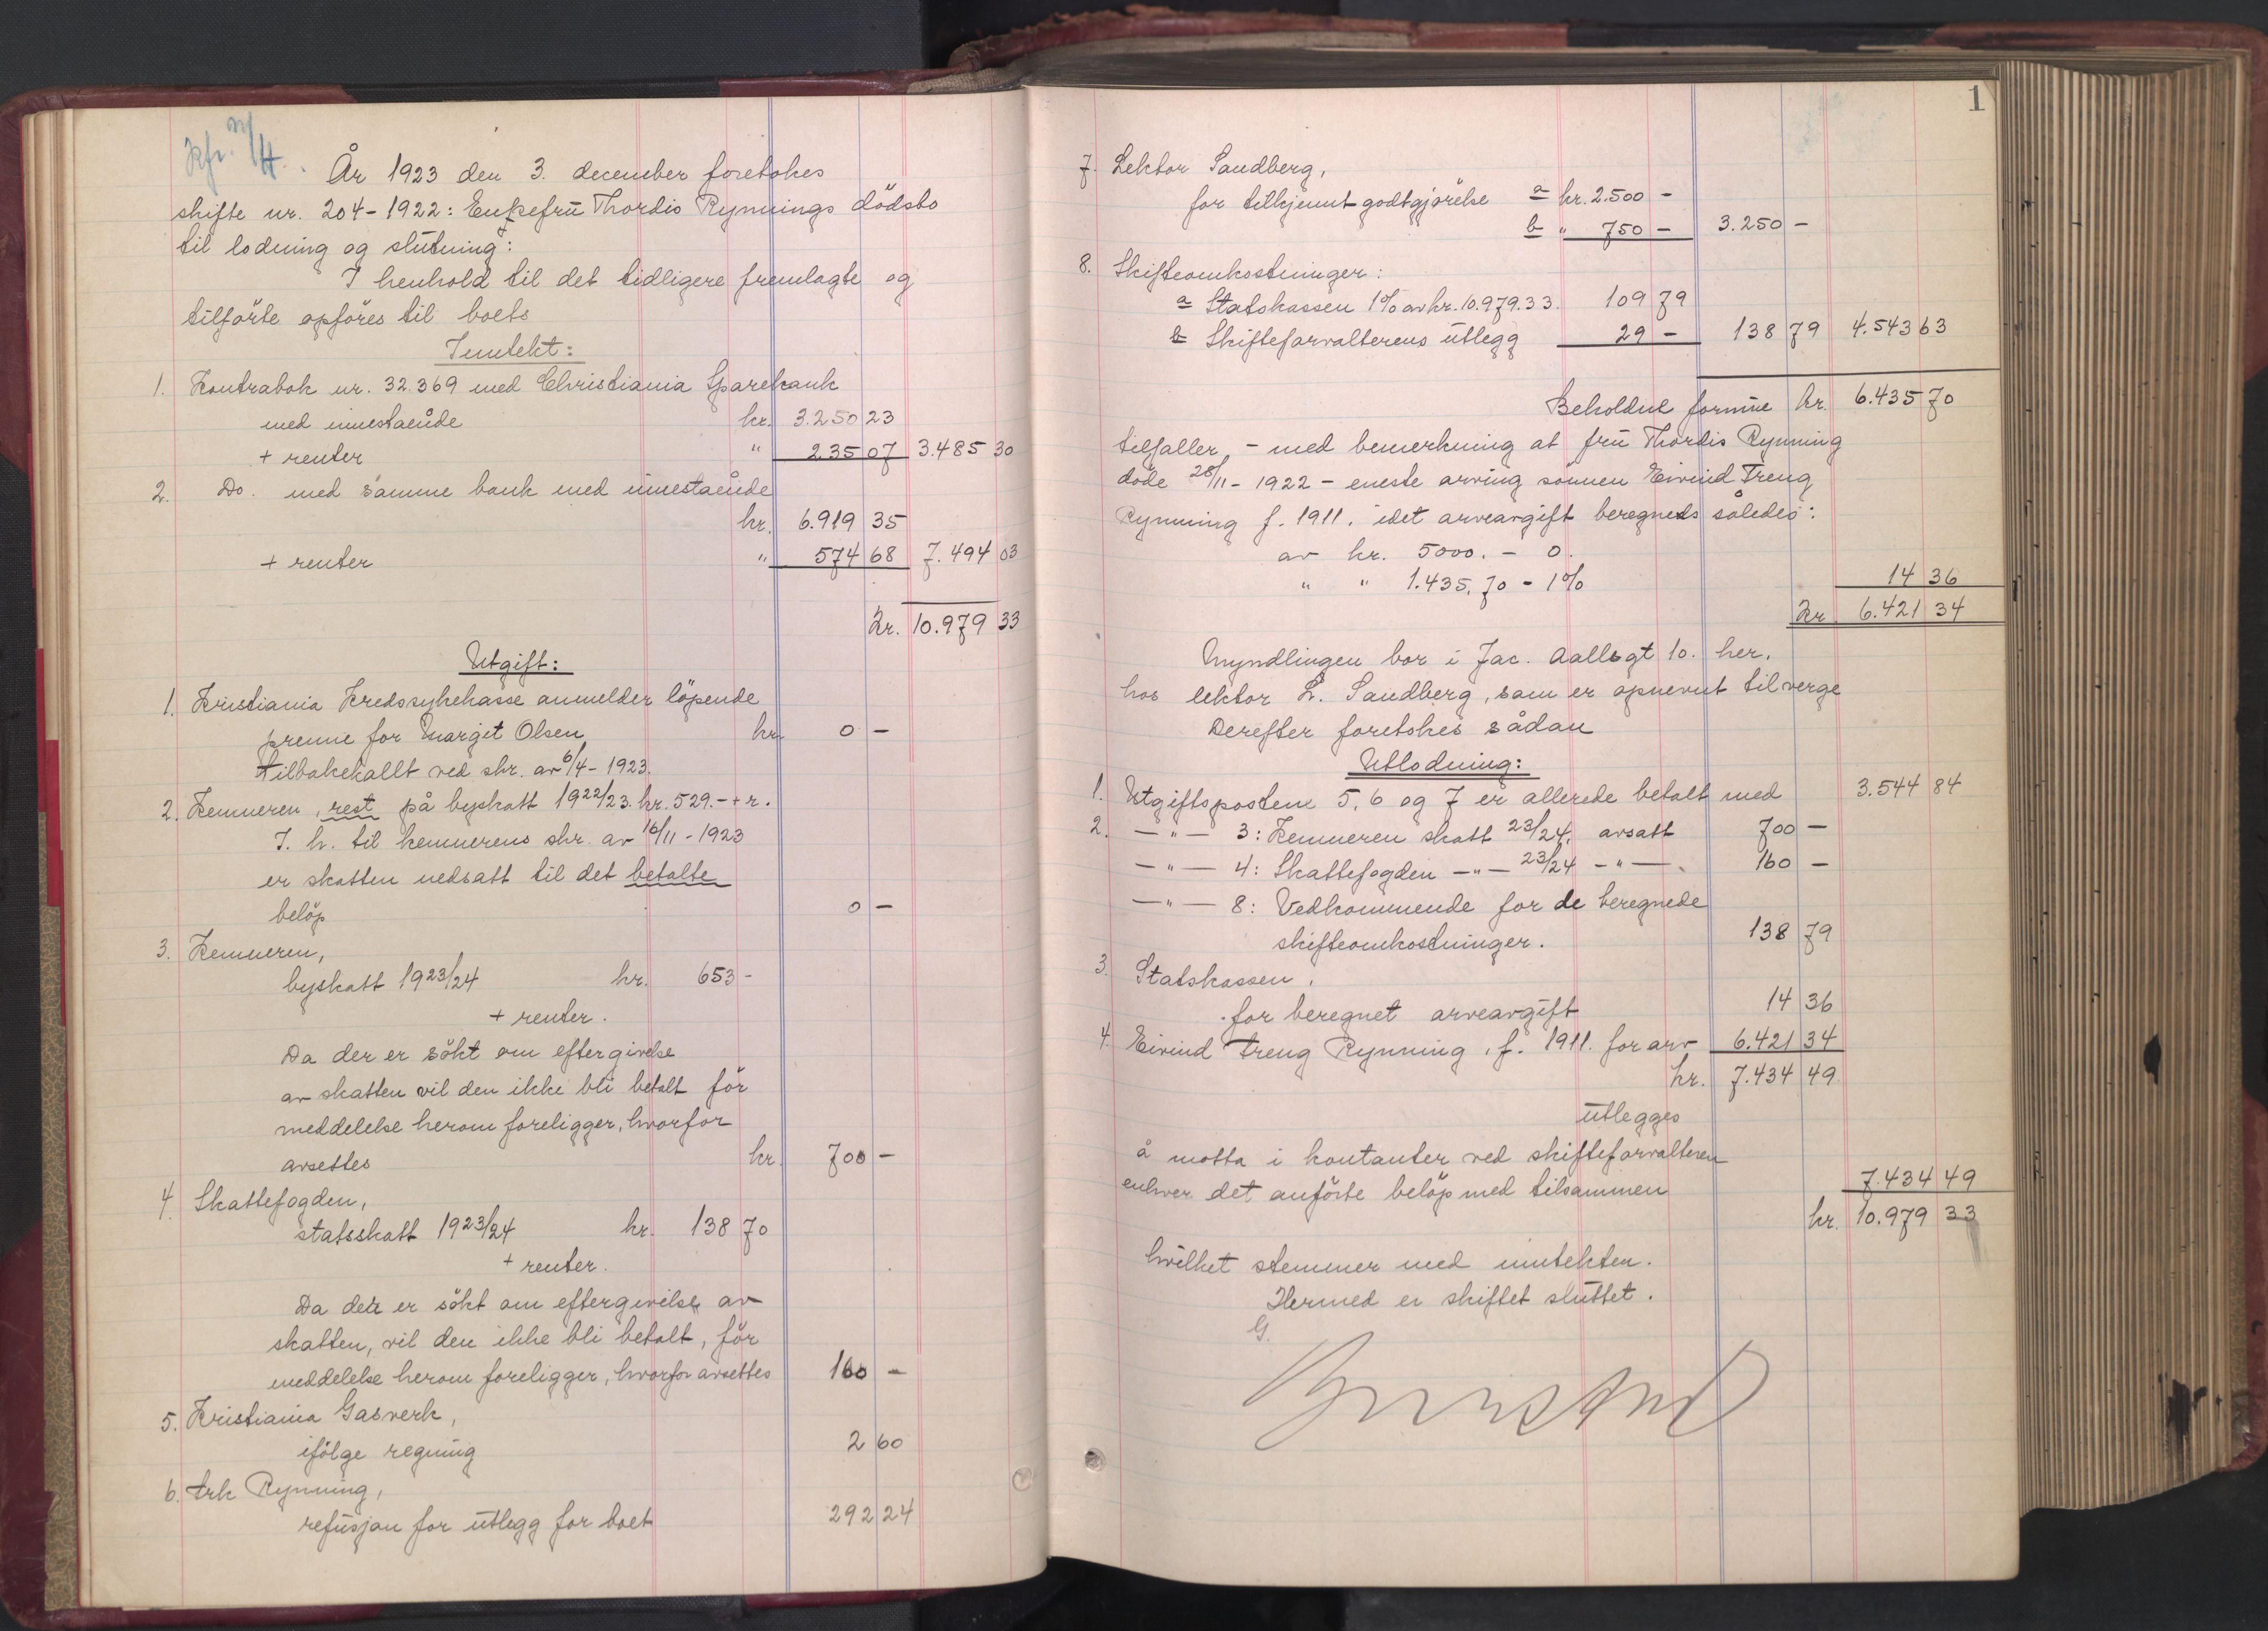 Kfr. /4.
År 1923 den 3. december foretokes
skifte nr. 204 - 1922: Enkefru Thordis Rynnings dödsbo
til lodning og slutning:
I henhold til det tidligere fremlagte og
tilförte opföres til boets
Inntekt:
1. Kontrabok nr. 32.369 med Christiania Sparebank
med innestaaende kr. 3.250 23
+ renter " 235 07 3.485 30
2. Do. med samme bank med innestaaende
kr. 6.919 35
+ renter " 574 68 7.494 03
Kr. 10.979 33
Utgift:
1. Kristiania Kredssykekasse anmelder löpende
premie for Margit Olsen kr. 0 -
tilbakekallt ved skr. av 6/4 - 1923.
2. Kemneren, rest på byskatt 1922/23. kr. 529.- + r.
I. h. til kemnerens skr. av 16/11 - 1923
er skatten nedsatt til det betalte
belöp 0 -
3. Kemneren,
byskatt 1923/24 kr. 653 -
+ renter.
Da der er sökt om eftergivelse
av skatten vil den ikke bli betalt för
meddelelse herom foreligger, hvorfor
avsettes kr. 700 -
4. Skattefogden,
statsskatt 1923/24 kr. 138 70
+ renter.
Da der er sökt om eftergivelse av
skatten, vil den ikke bli betalt, för
meddelelse herom foreligger, hvorfor avsettes 160 -
5. Kristiania Gasverk,
ifölge regning 2 60
6. Ark Rynning,
refusjon for utlegg for boet 292 24
1
7. Lektor Sandberg,
for tilkjennt godtgjörelse a kr. 2.500 -
b " 750 - 3.250 -
8. Skifteomkostninger:
a Statskassen 1% av kr. 10.979.33. 109 79
b Skifteforvalterens utlegg 29 - 138 79 4.543 63
Beholdne formue kr. 6.435 70
tilfaller - med bemerkning at fru Thordis Rynning
döde 28/11 - 1922 - eneste arving sönnen Eivind Treng
Rynning f. 1911. idet arveavgift beregnes således:
av kr. 5000. - 0.
" " 1.435.70 - 1% 14 36
Kr. 6.421 34
Myndlingen bor i Jac. Aallsgt 10. her.
hos lektor L. Sandberg, som er opnevnt til verge
Derefter foretokes sådan
Utlodning:
1. Utgiftspostene 5, 6 og 7 er allerede betalt med 3.544 84
2. - " - 3: Kemneren skatt 23/24, avsatt 700 -
- " - 4: Skattefogden - " - 23/24 - " - 160 -
- " - 8: Vedkommende for de beregnede
skifteomkostninger. 138 79
3. Statskassen,
for beregnet arveavgift 14 36
4. Eivind Treng Rynning, f. 1911. for arv 6.421 34
kr. 7.434 49
utlegges
å motta i kontanter ved skifteforvalteren
enhver det anförte belöp med tilsammen 7.434 49
kr. 10.979 33
hvilket stemmer med inntekten.
Hermed er skiftet sluttet.
G.